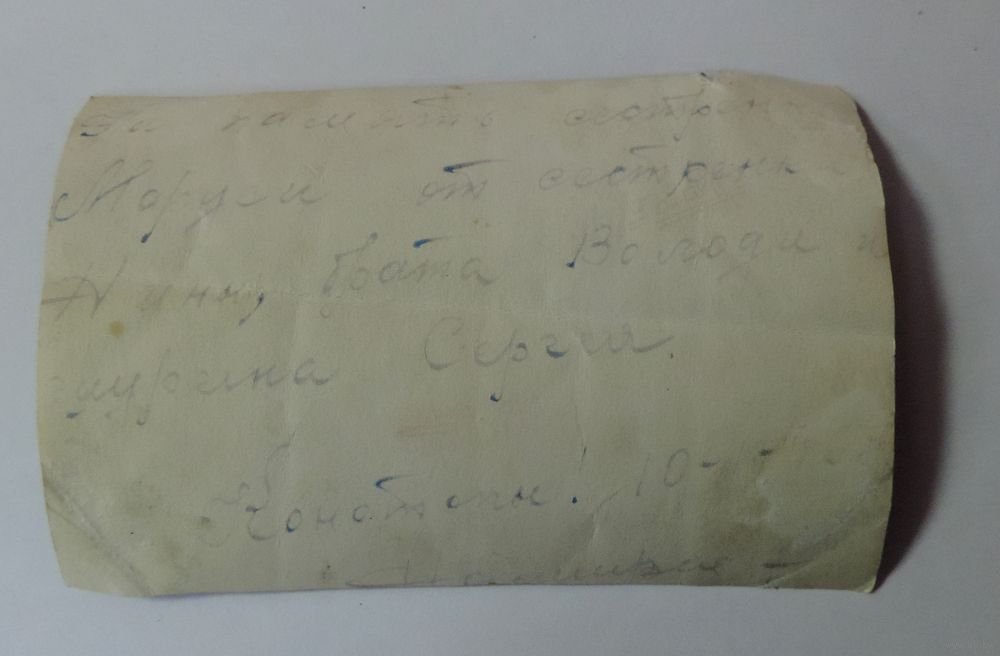 На память сестрен
Маруси от сестренки
Нины, брата Володи и
шурина Сергея
Конотопы. 10-